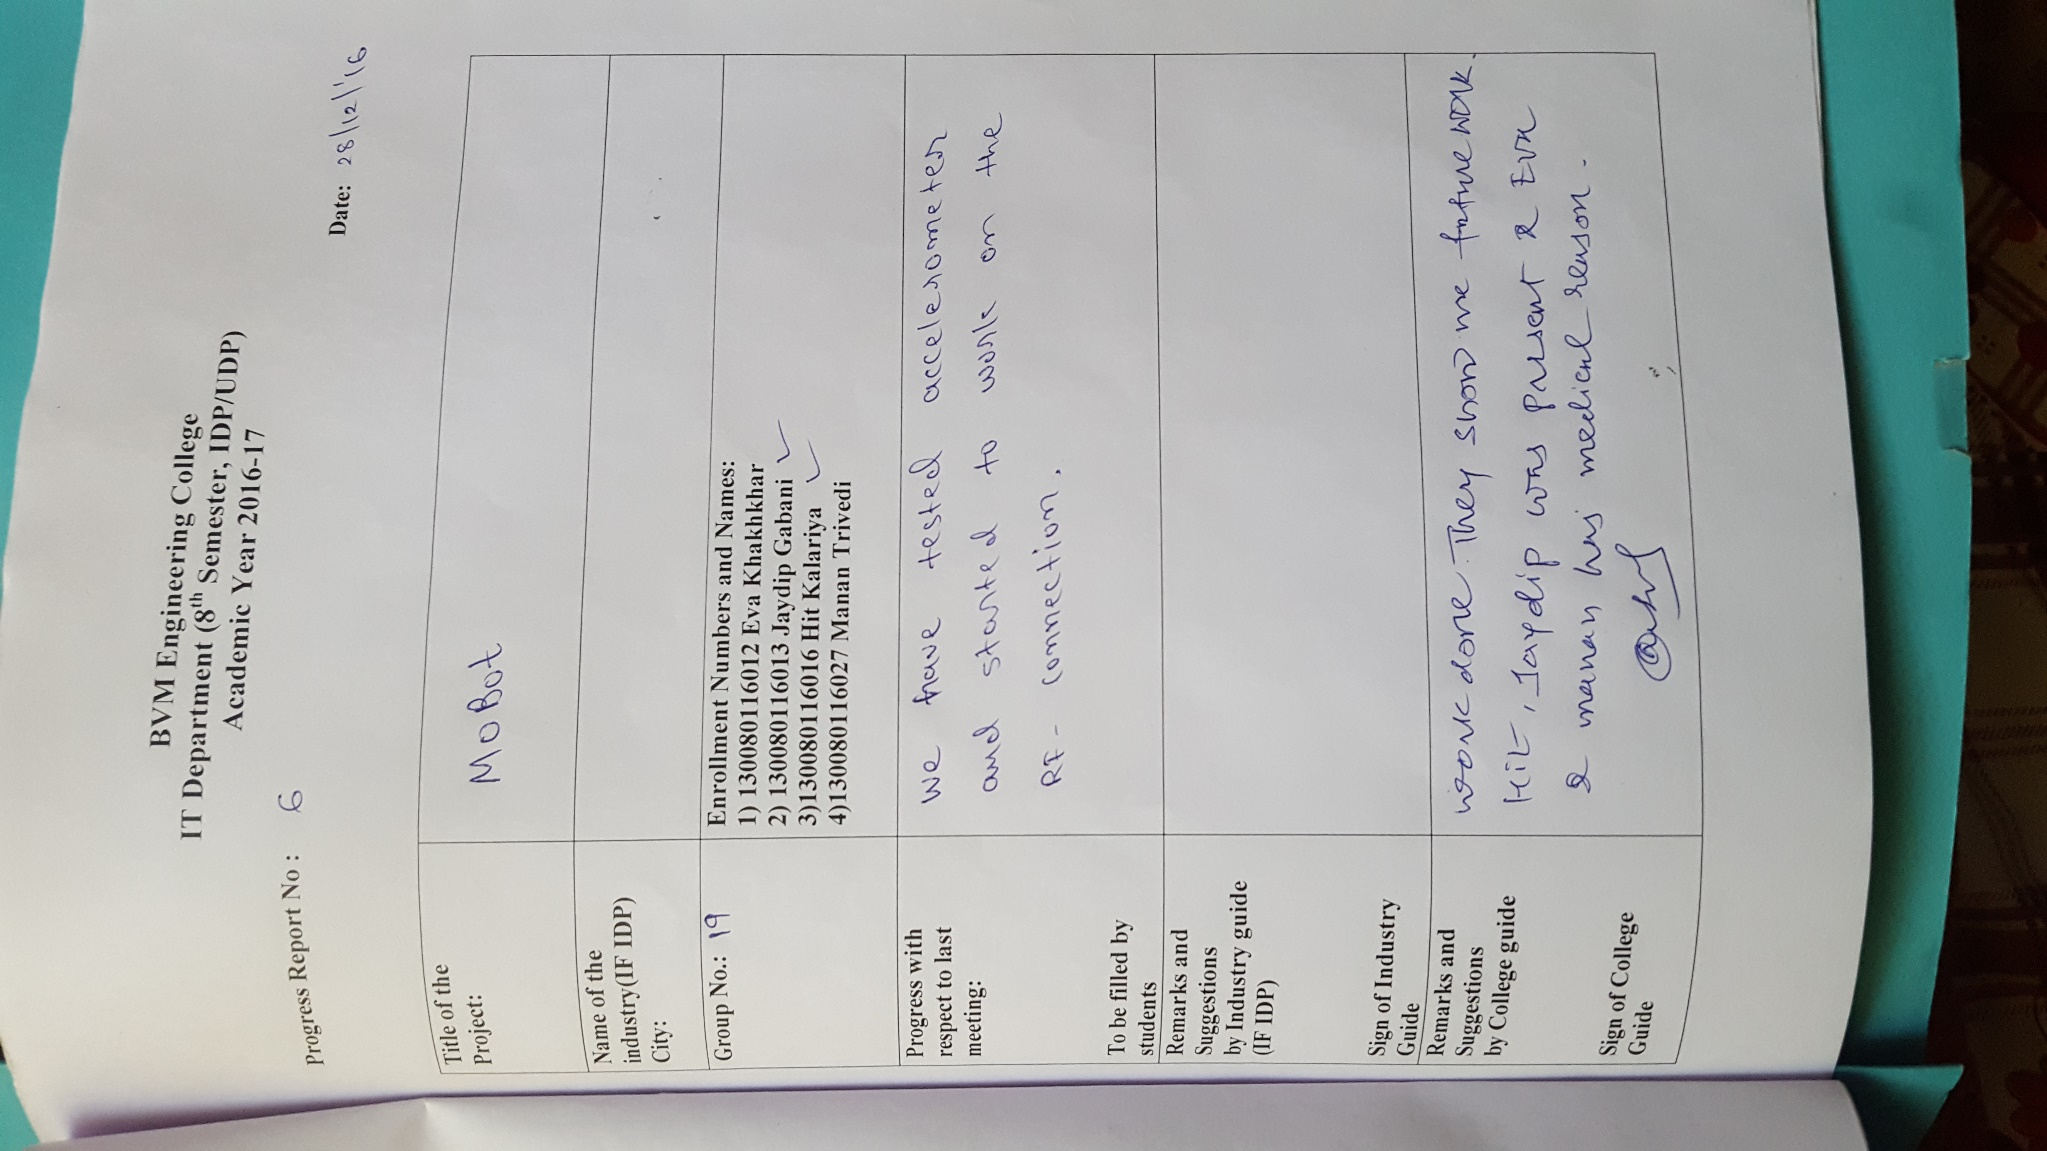 BVM Engineering College
IT Department (8th Semester, IDP/UDP)
Academic Year 2016-17
Progress Report No : 6
Date: 28/12/'16
Title of the
Project:
MOBot
Name of the
industry(IF IDP)
City:
Group No.: 19
Enrollment Numbers and Names:
1) 130080116012 Eva Khakhkhar
2) 130080116013 Jaydip Gabani ✓
3)130080116016 Hit Kalariya ✓
4)130080116027 Manan Trivedi
Progress with
respect to last
meeting:
To be filled by
students
We have tested accelerometer
and started to work on the
RF - connection.
Remarks and
Suggestions
by Industry guide
(IF IDP)
Sign of Industry
Guide
Remarks and
Suggestions
by College guide
Sign of College
Guide
work done. They show me future work.
Hit, Jaydip was present & Eva
& manan has medical reason.